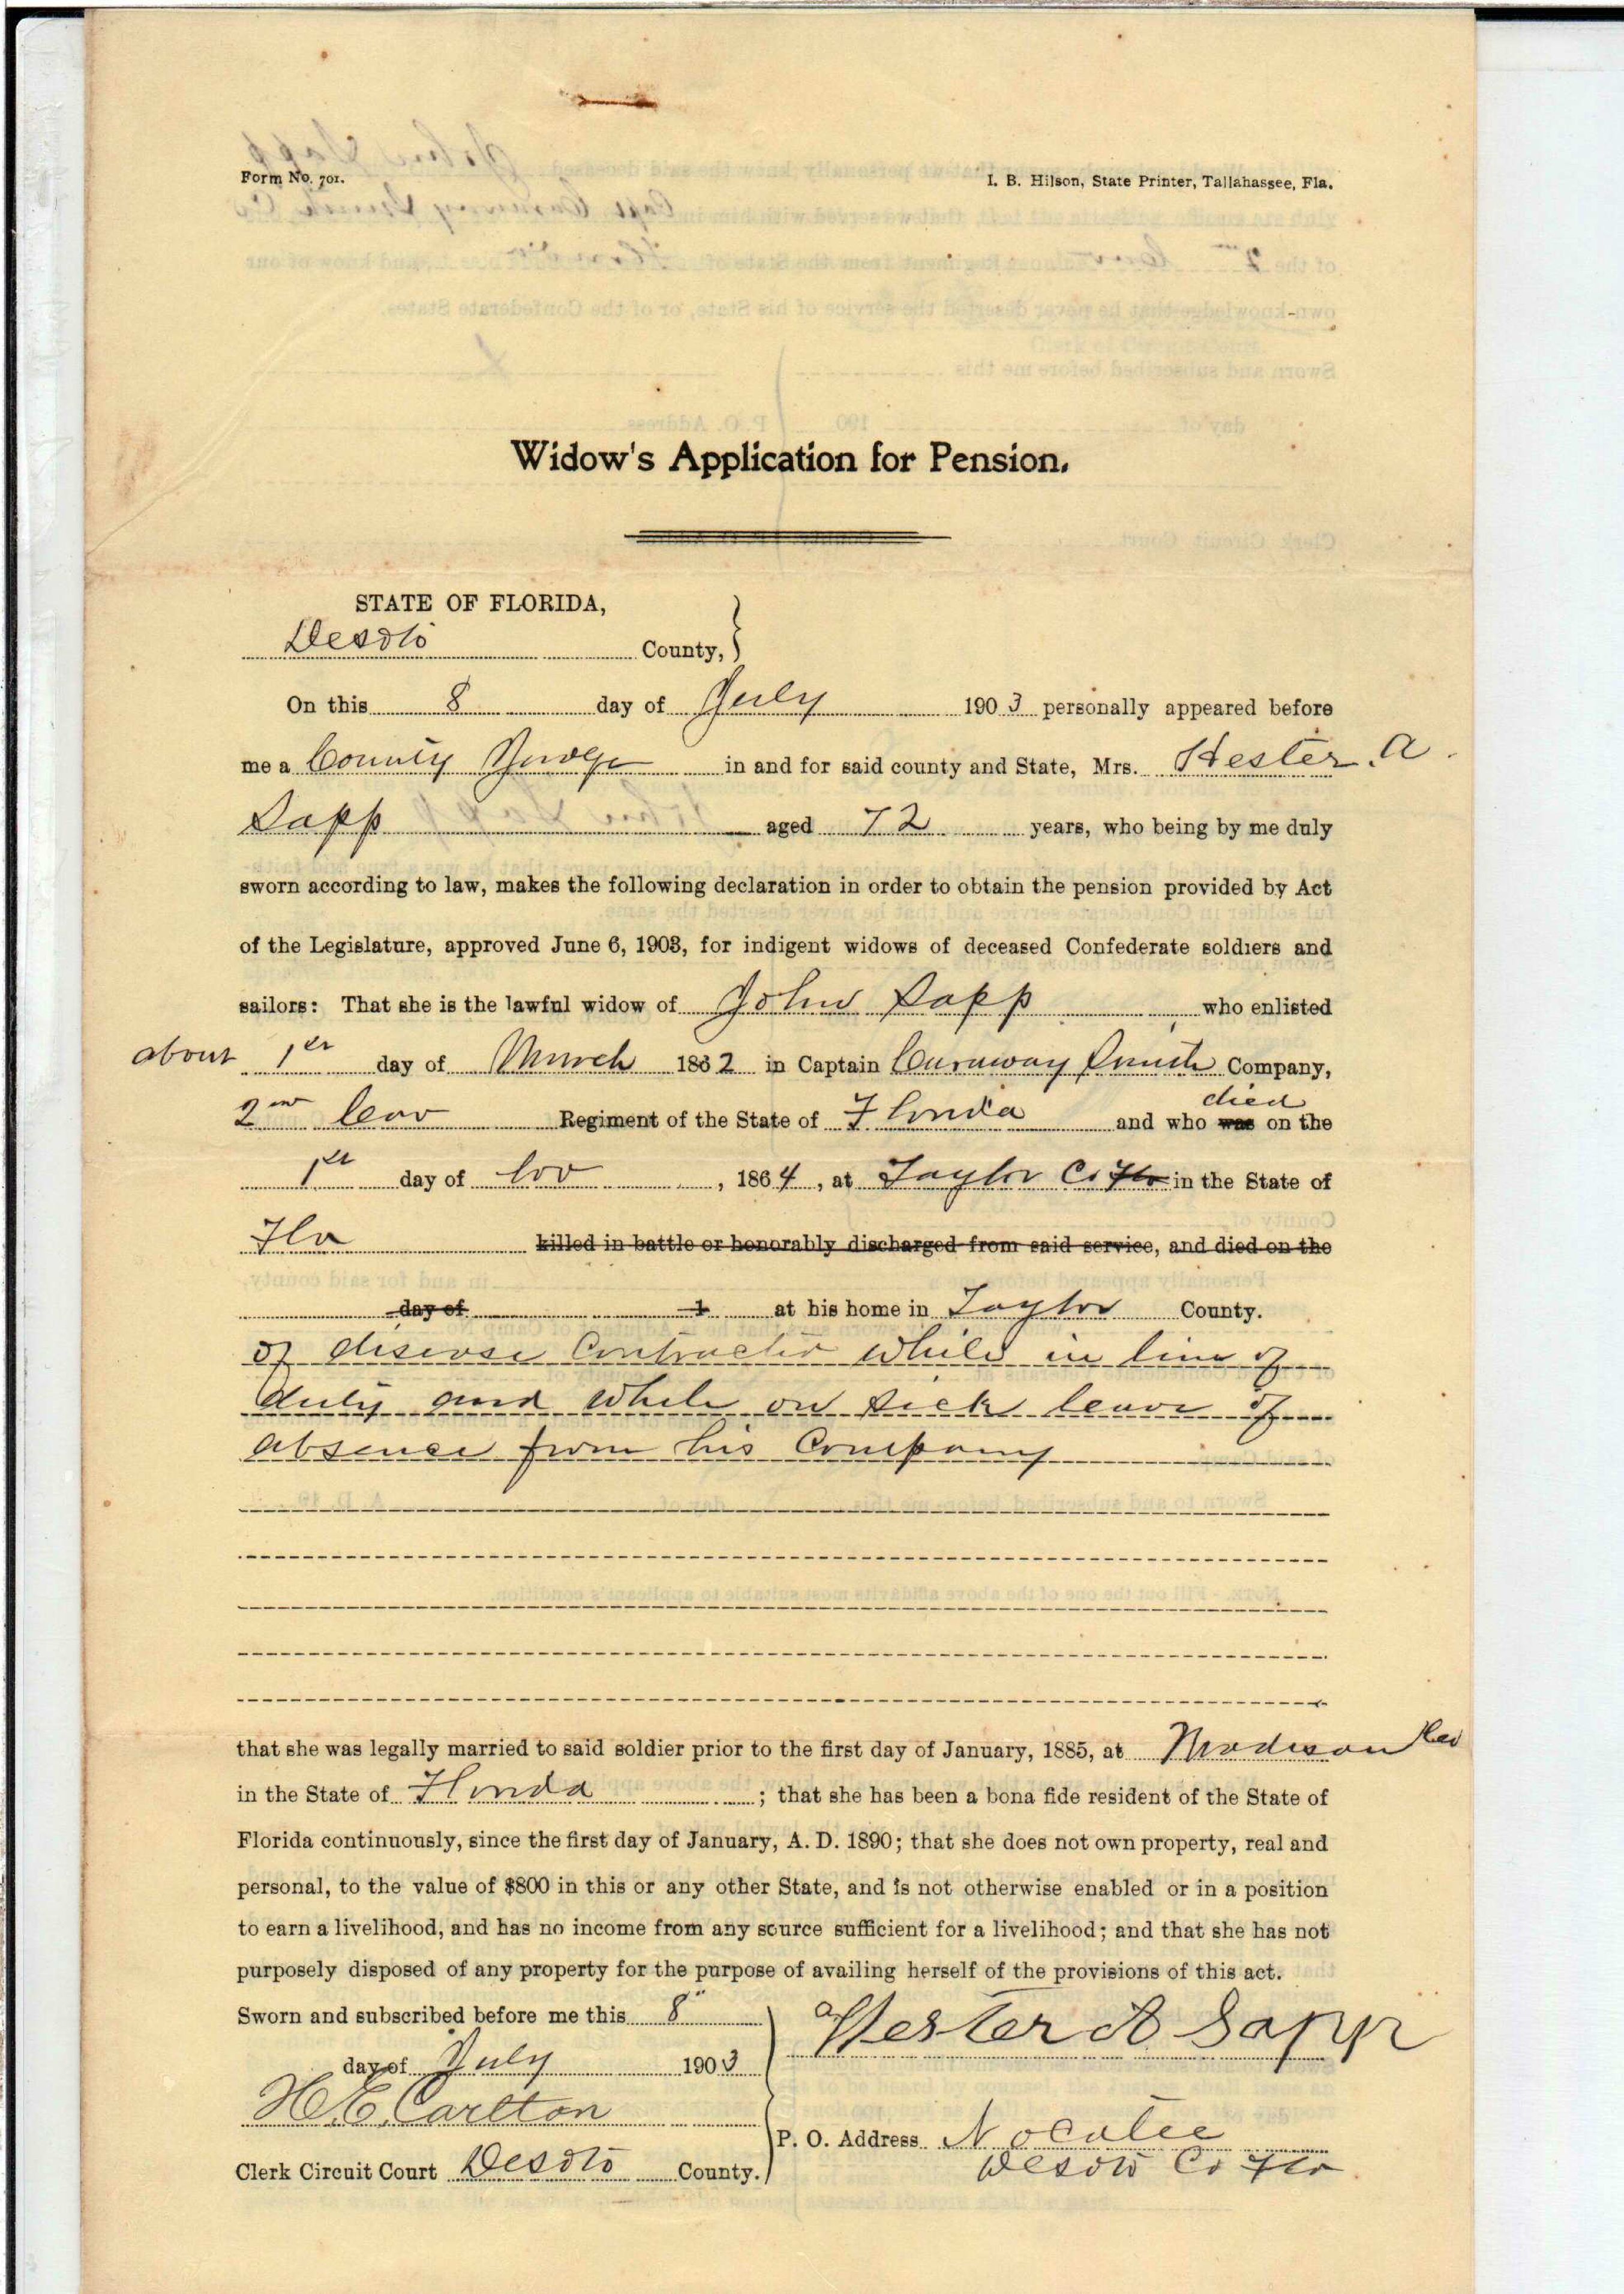 Form No. 701.
I. B. Hilson, State Printer, Tallahassee, Fla.
Widow's Application for Pension.
STATE OF FLORIDA,
Desoto County,
On this 8 day of July 1903 personally appeared before
me a County Judge in and for said county and State, Mrs. Hester. A
Sapp aged 72 years, who being by me duly
sworn according to law, makes the following declaration in order to obtain the pension provided by Act
of the Legislature, approved June 6, 1903, for indigent widows of deceased Confederate soldiers and
sailors: That she is the lawful widow of John Sapp who enlisted
about 1st day of March 1862 in Captain Caraway Smith Company,
died
2nd Cav Regiment of the State of Florida and who was on the
1st day of , 1864, at Taylor Co Fla in the State of
Fla killed in battle or honorably discharged from said service, and died on the
day of 1 at his home in Taylor County.
of disease Contracted while in line of
duty and while on sick leave of
absence from his Company
that she was legally married to said soldier prior to the first day of January, 1885, at Madison
in the State of Florida ; that she has been a bona fide resident of the State of
Florida continuously, since the first day of January, A. D. 1890; that she does not own property, real and
personal, to the value of $800 in this or any other State, and is not otherwise enabled or in a position
to earn a livelihood, and has no income from any source sufficient for a livelihood; and that she has not
purposely disposed of any property for the purpose of availing herself of the provisions of this act.
Sworn and subscribed before me this 8"
day of July 1903
Hester A Sapp
H. E. Carlton
P. O. Address Nocatee
Clerk Circuit Court Desoto County.
Desoto Co Fla